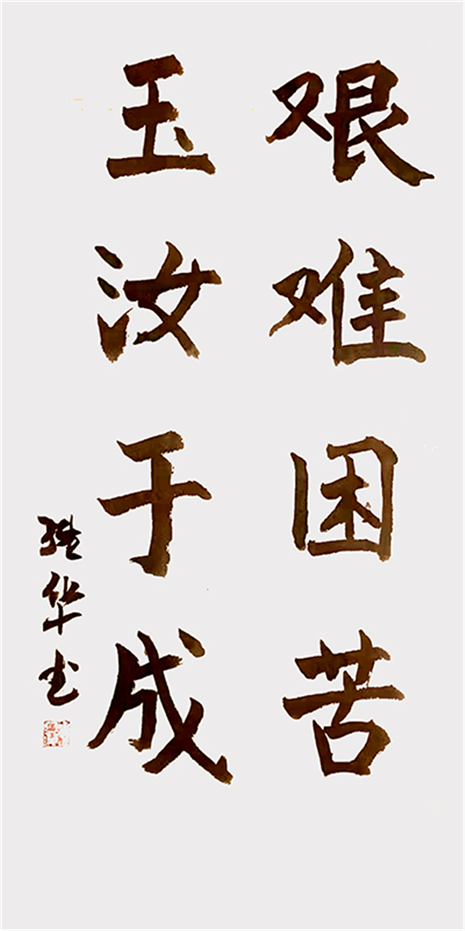 艰难困苦
玉汝于成
华书